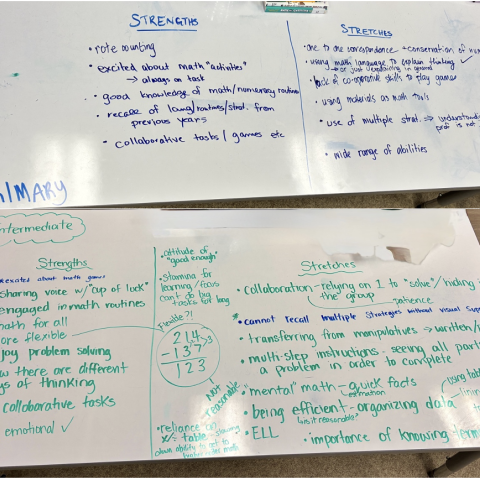 STRENGTHS
• rote counting
• excited about math "activities"
→ always on task
• good knowledge of math/numeracy routines
• recall of lang/routines/strat. from
previous years
• collaborative tasks/games etc
STRETCHES
• one to one correspondence + conservation of
• using math language to explain thinking ✓
→ or just explaining in general
• lack of co-operative skills to play games
• using materials as math tools
• use of multiple strat. ⇒
• wide range of abilities
/MARY
Intermediate
Strengths
excited about math games
sharing voice w/ "cup of luck"
engaged in math routines
math for all
are flexible
joy problem solving
there are different
ys of thinking
collaborative tasks
emotional ✓
• attitude of
"good enough"
• Stamina for
learning/focus
can't do big
tasks for long
Flexible?!
214
-137
123
Not
reasonable
• reliance on
x/÷ table
Stretches
• collaboration - relying on 1 to "solve"/hiding
the group
patience
• cannot recall multiple strategies without visual
• transferring from manipulatives → written/
• multi-step instructions. seeing all
a problem in order to complete
• "mental" math - quick facts
estimation
• being efficient - organizing data
is it reasonable?
• ELL
• importance of knowing